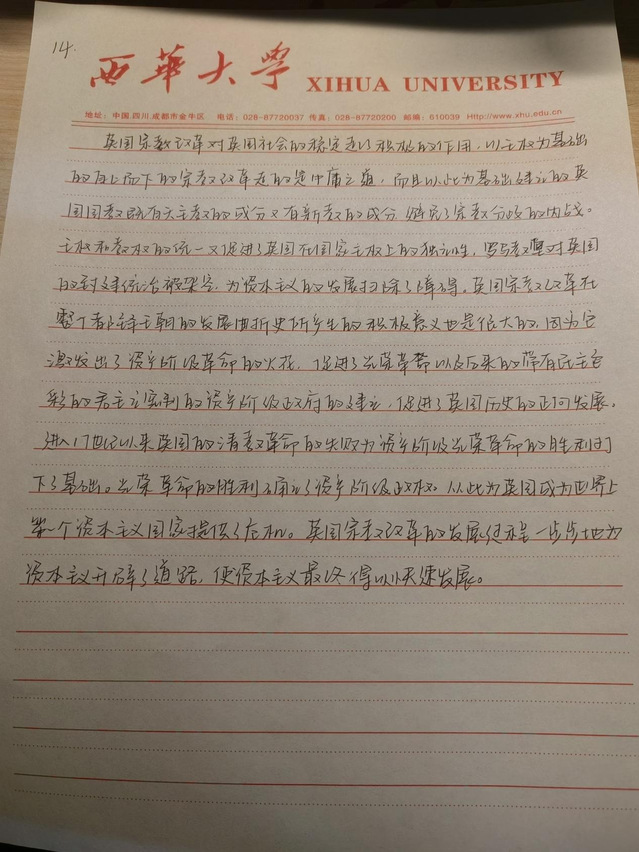 14.
西華大學 XIHUA UNIVERSITY
地址：中国.四川.成都市金牛区 电话：028-87720037 传真：028-87720200 邮编：610039 Http://www.xhu.edu.cn
英国宗教改革对英国社会的稳定起以积极的作用，以王权为基础
的自上而下的宗教改革走的是中庸之道，而且以此为基础建立的英
国国教既有天主教的成分又有新教的成分，避免了宗教分歧的内战。
王权和教权的统一又促进了英国在国家主权上的独立性，罗马教皇对英国
的封建统治被架空，为资本主义的发展扫除了障碍。英国宗教改革在
整个都铎王朝的发展曲折史所产生的积极意义也是很大的，因为它
激发出了资产阶级革命的火花，促进了光荣革命以及后来的带有民主色
彩的君主立宪制的资产阶级政府的建立，促进了英国历史的正向发展。
进入17世纪以来英国的清教革命的失败为资产阶级光荣革命的胜利打
下了基础。光荣革命的胜利确立了资产阶级政权，从此为英国成为世界上
第一个资本主义国家提供了危机。英国宗教改革的发展过程一步步地为
资本主义开辟了道路，使资本主义最终得以快速发展。